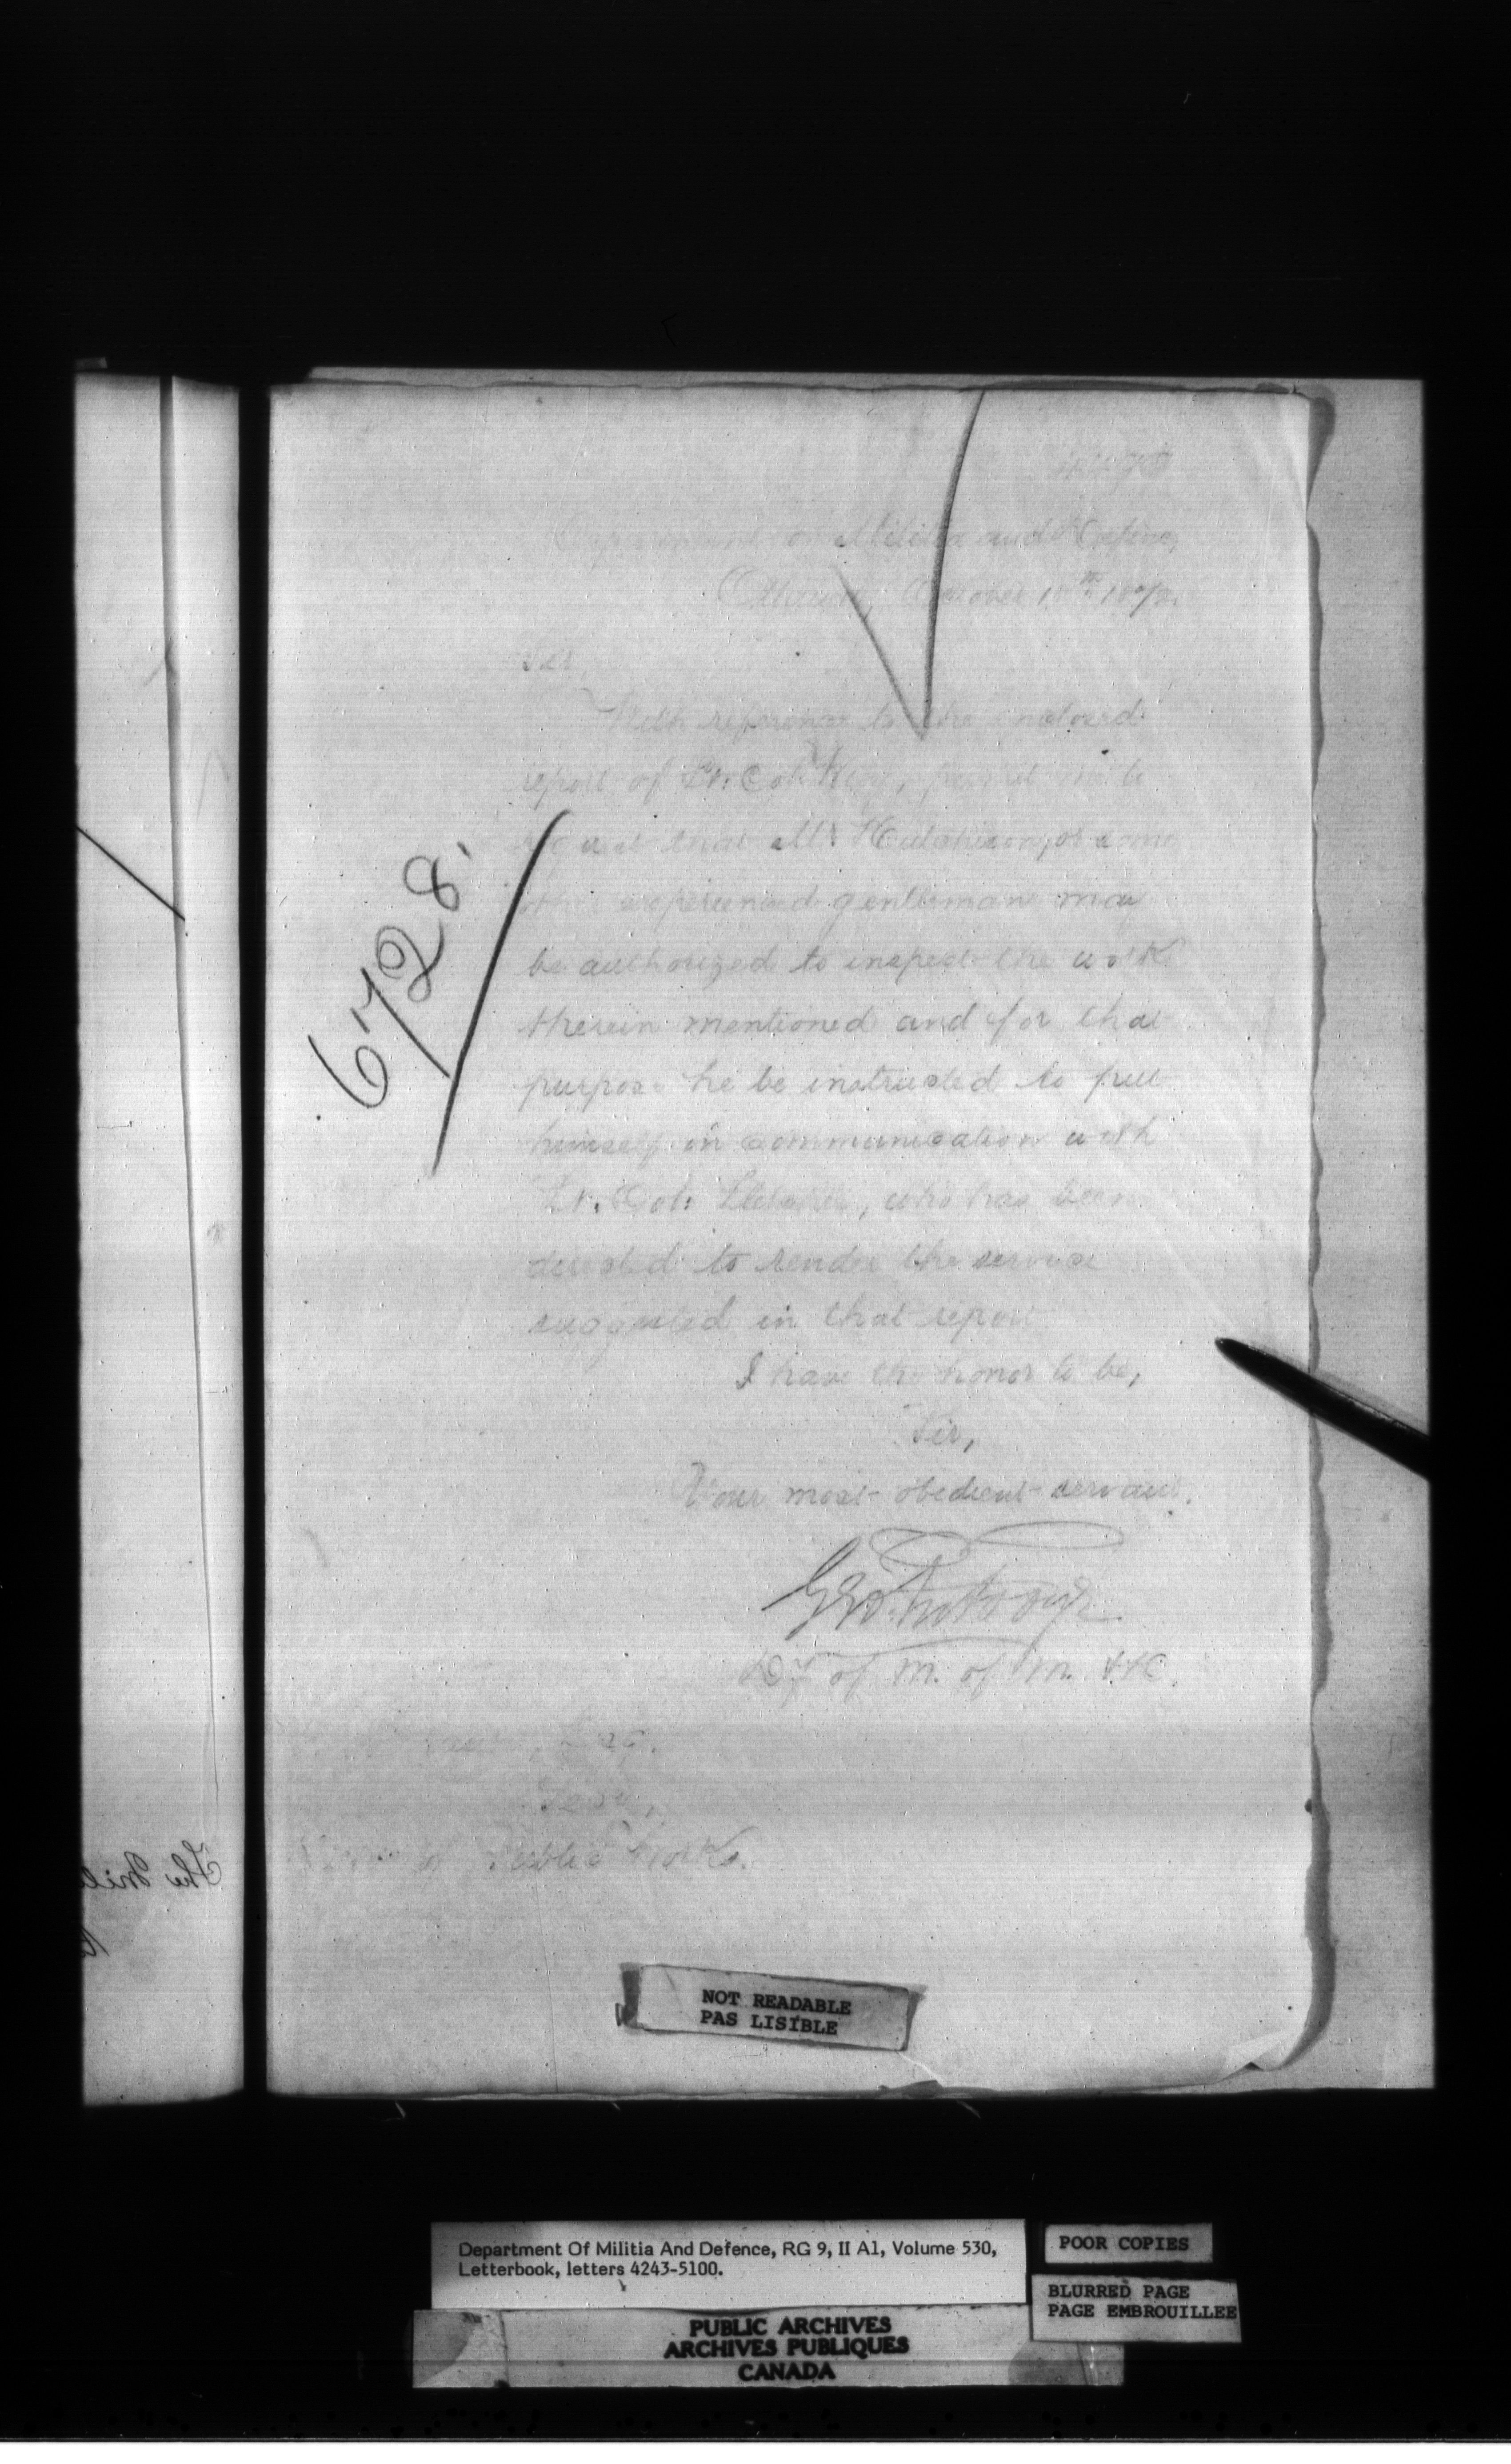 Department of Militia and Defence,
Ottawa, October 18th 187
Sir,
With reference to the enclosed
report of Lt. Col. King, permit me to
request that Mr Hutchison, or some
other experienced gentleman may
be authorized to inspect the work
therein mentioned and for that
purpose he be instructed to put
himself in communication with
Lt. Col. Fletcher, who has been
directed to render the service
suggested in that report
I have the honor to be,
Sir,
Your most obedient servant.
Geo. Futvoye
Dy of M. of M. & D.
Esq.
Secy,
Public Works.
6728.
The Mil
NOT READABLE
PAS LISIBLE
Department Of Militia And Defence, RG 9, II A1, Volume 530,
Letterbook, letters 4243-5100.
POOR COPIES
BLURRED PAGE
PAGE EMBROUILLEE
PUBLIC ARCHIVES
ARCHIVES PUBLIQUES
CANADA